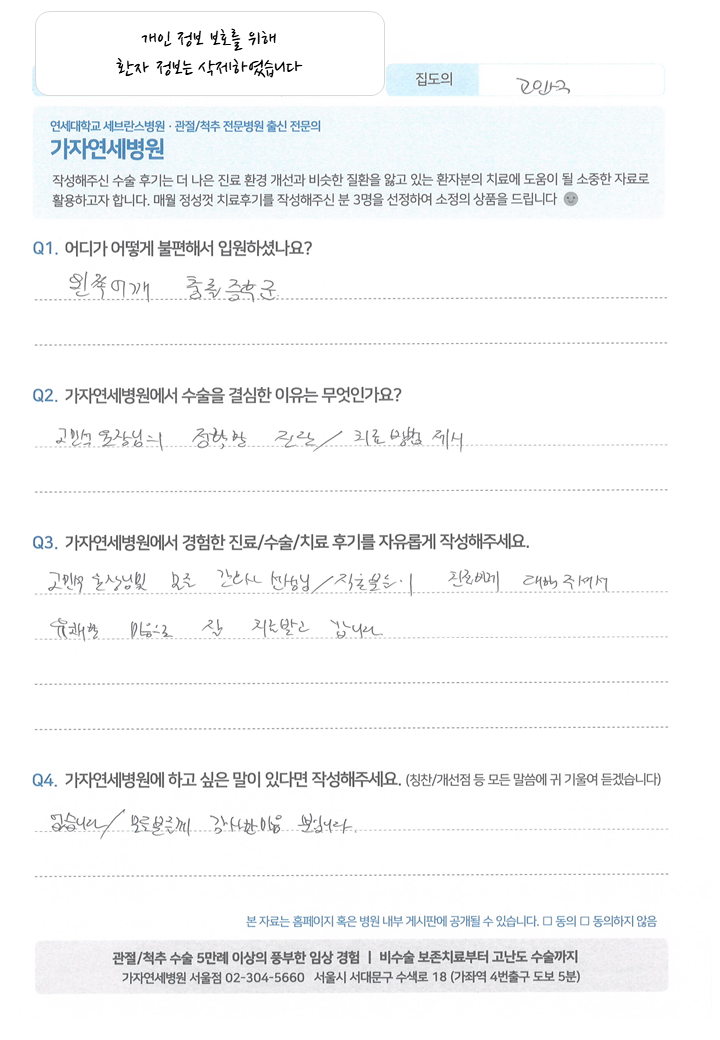 개인 정보 보호를 위해
환자 정보는 삭제하였습니다
집도의 고민석
연세대학교 세브란스병원 · 관절/척추 전문병원 출신 전문의
가자연세병원
작성해주신 수술 후기는 더 나은 진료 환경 개선과 비슷한 질환을 앓고 있는 환자분의 치료에 도움이 될 소중한 자료로
활용하고자 합니다. 매월 정성껏 치료후기를 작성해주신 분 3명을 선정하여 소정의 상품을 드립니다
Q1. 어디가 어떻게 불편해서 입원하셨나요?
왼쪽어깨 충돌증후군
Q2. 가자연세병원에서 수술을 결심한 이유는 무엇인가요?
고민석 원장님의 정확한 진단/ 치료 방법 제시
Q3. 가자연세병원에서 경험한 진료/수술/치료 후기를 자유롭게 작성해주세요.
고민석 원장님및 모든 간호사 선생님/직원분들이 친절하게 대해주셔서
유쾌한 마음으로 잘 치료받고 갑니다
Q4. 가자연세병원에 하고 싶은 말이 있다면 작성해주세요. (칭찬/개선점 등 모든 말씀에 귀 기울여 듣겠습니다)
없습니다/ 모든분들께 감사한마음 보냅니다.
본 자료는 홈페이지 혹은 병원 내부 게시판에 공개될 수 있습니다. □ 동의 □ 동의하지 않음
관절/척추 수술 5만례 이상의 풍부한 임상 경험 | 비수술 보존치료부터 고난도 수술까지
가자연세병원 서울점 02-304-5660 서울시 서대문구 수색로 18 (가좌역 4번출구 도보 5분)